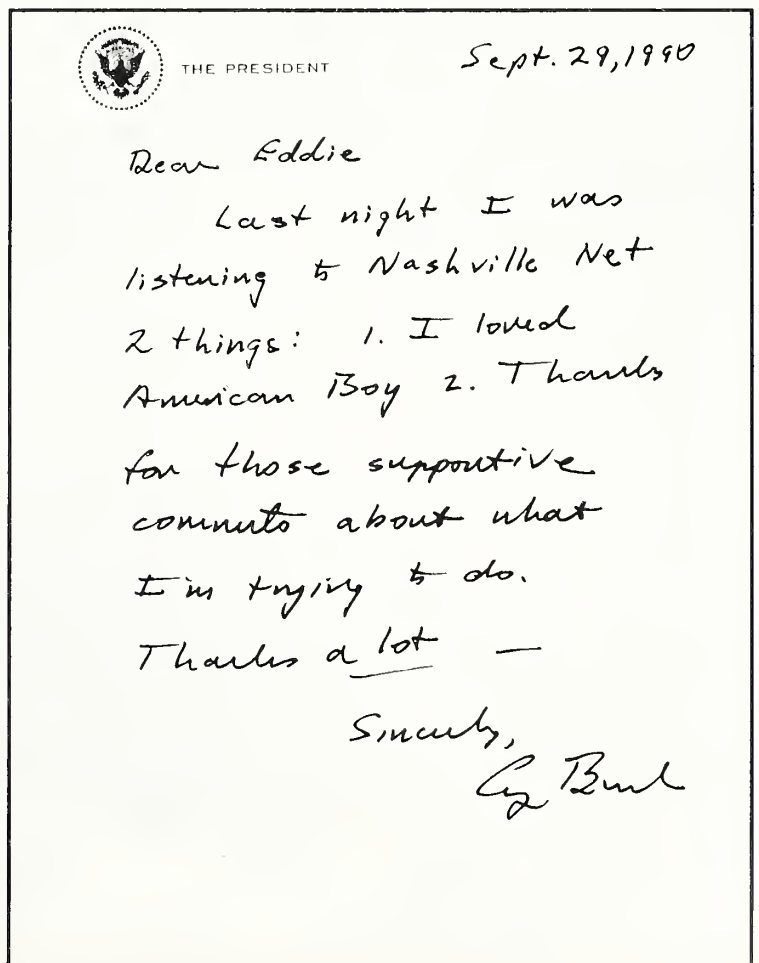 THE PRESIDENT
Sept. 29, 1990
Dear Eddie
Last night I was
listening to Nashville Net
2 things: 1. I loved
American Boy 2. Thanks
for those supportive
comments about what
I'm trying to do.
Thanks a lot —
Sincerely,
Gg Bush